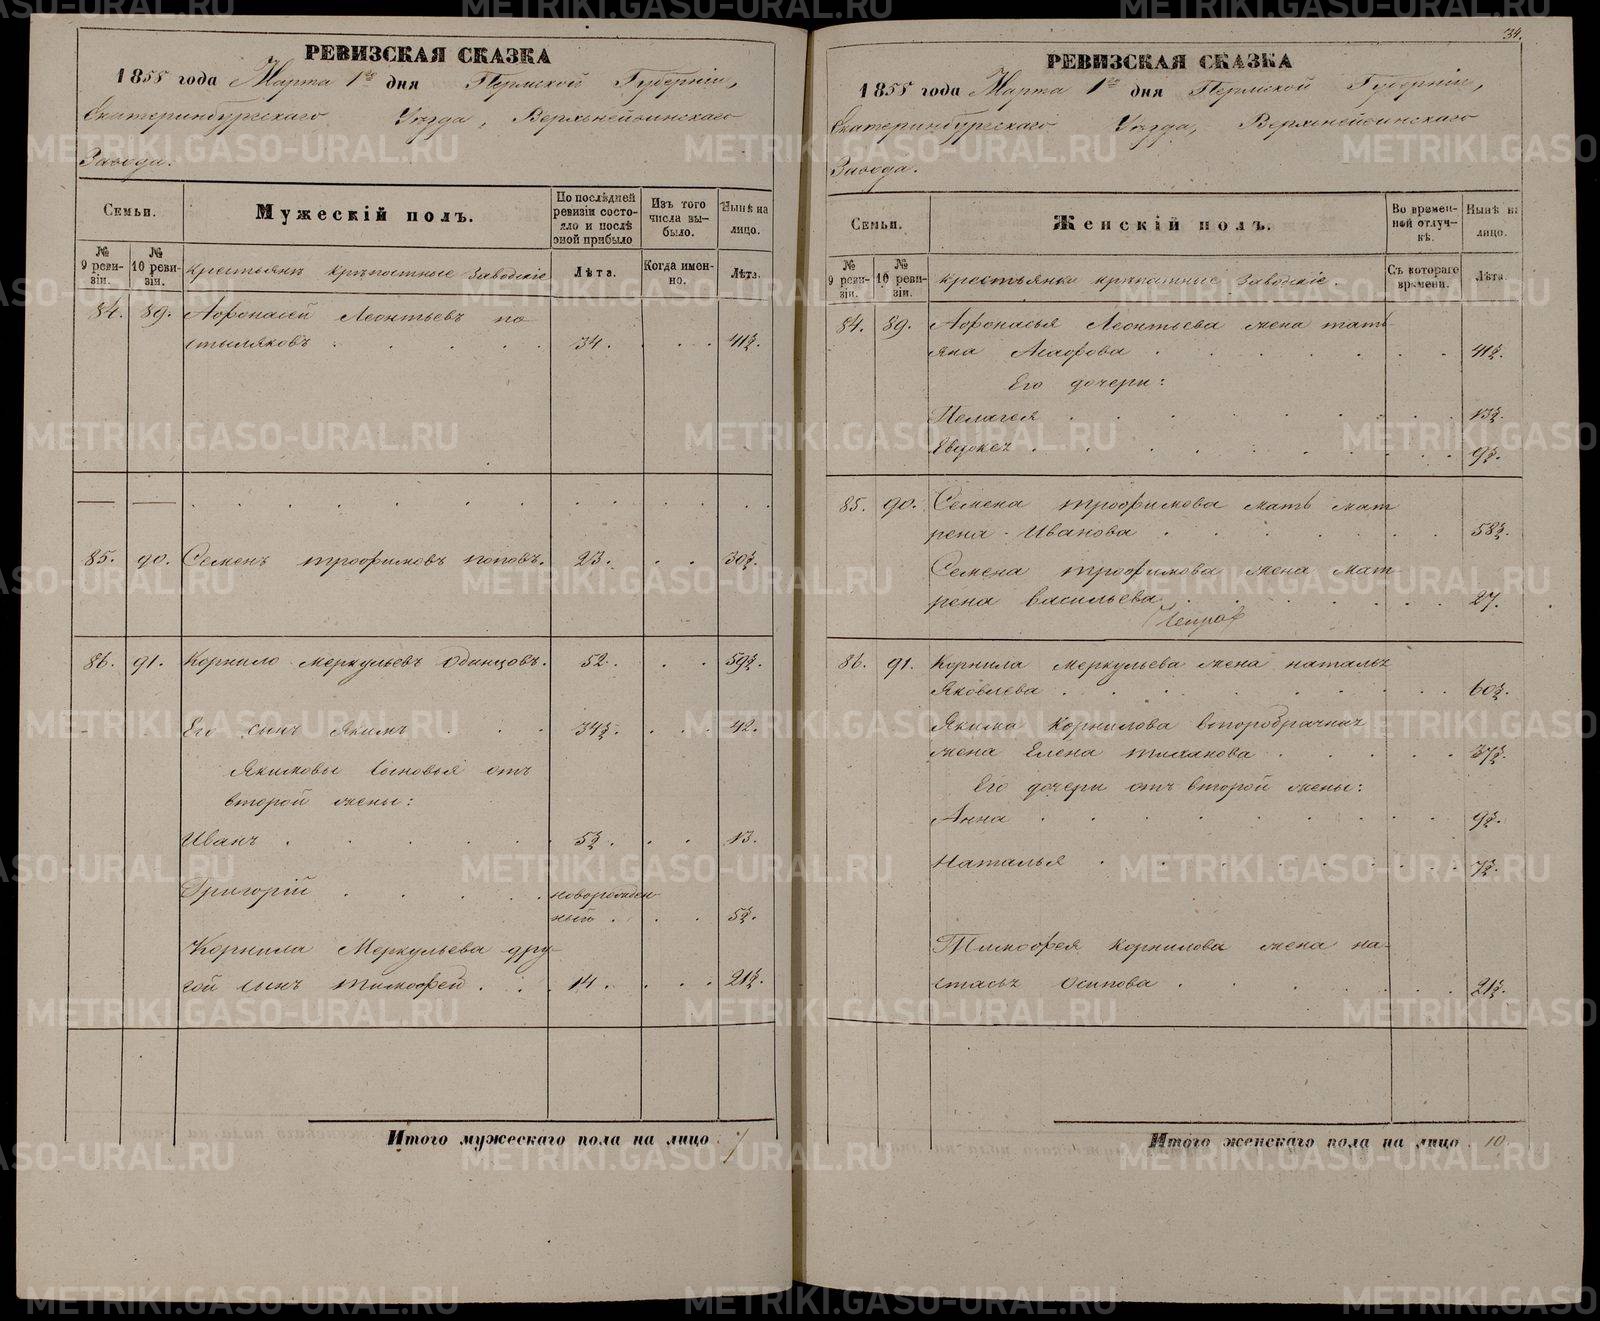 РЕВИЗСКАЯ СКАЗКА
1858 года Марта 1го дня Пермской Губерніи,
Екатеринбургскаго Уѣзда, Верхнейвинскаго
Завода.
Семьи.
Мужескій полъ.
По послѣдней ревизіи состояло и послѣ оной прибыло
Изъ того числа выбыло.
Нынѣ на лицо.
№ 9 ревизіи.
№ 10 ревизіи.
крестьяне крѣпостные заводскіе
Лѣта.
Когда именно.
Лѣта.
84. 89. Афонасей Леонтьевъ по
стыляковъ 34. 41½.
85. 90. Семенъ Трофимовъ поповъ. 23. 30½.
86. 91. Корнило Меркульевъ Одинцовъ. 52. 59½.
Его сынъ Якимъ 34½. 42.
Якимовы сыновья отъ
второй жены:
Иванъ 5½. 13.
Григорій новорожден
ный 5½.
Корнила Меркульева дру
гой сынъ Тимофей 14. 21½.
Итого мужескаго пола на лицо 7
34.
РЕВИЗСКАЯ СКАЗКА
1858 года Марта 1го дня Пермской Губерніи,
Екатеринбургскаго Уѣзда, Верхнейвинскаго
Завода.
Семьи.
Женскій полъ.
Во временной отлучкѣ.
Нынѣ на лицо.
№ 9 ревизіи.
№ 10 ревизіи.
крестьянки крѣпостные заводскіе.
Съ котораго времени.
Лѣта.
84. 89. Афонасья Леонтьева жена тать
яна Агафова 41½.
Его дочери:
Пелагея 13½.
Евдокея 9½.
85. 90. Семена Трофимова мать мат
рена Иванова 58½.
Семена Трофимова жена мат
рена васильева 27.
86. 91. Корнила Меркульева жена наталья
Яковлева 60½.
Якима Корнилова второбрачная
жена Елена 37½.
Его дочери отъ второй жены:
Анна 9½.
Наталья 7½.
Тимофея Корнилова жена на
стасья Осипова 21½.
Итого женскаго пола на лицо 10
METRIKI.GASO-URAL.RU